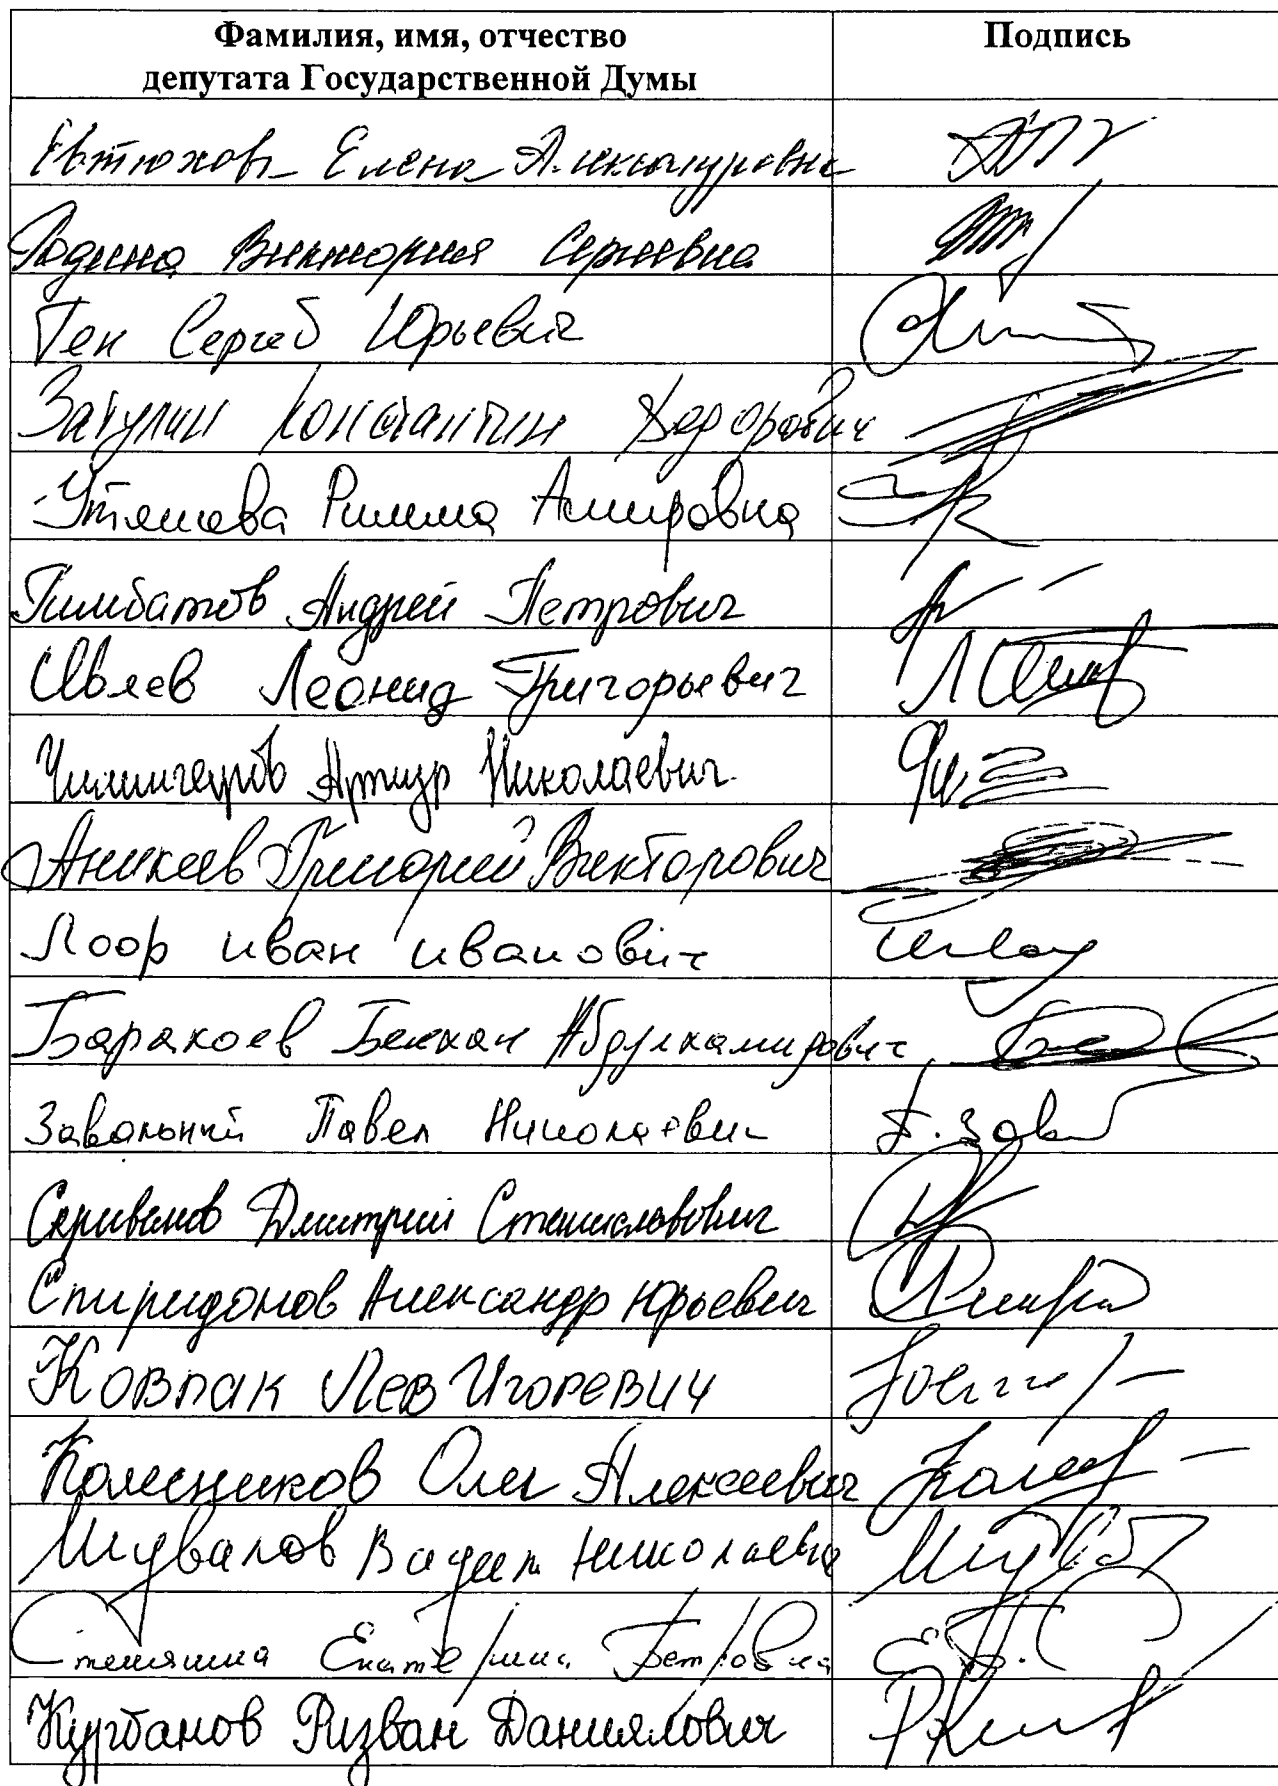 Фамилия, имя, отчество Подпись
депутата Государственной Думы
Евтюхова Елена Александровна
Родина Виктория Сергеевна
Тен Сергей Юрьевич
Затулин Константин Федорович
Утяшева Римма Амировна
Андрей Петрович
Ивлев Леонид Григорьевич
Чилингаров Артур Николаевич
Аникеев Григорий Викторович
Лоор Иван Иванович
Баракоев Бекхан Абдулхамидович
Завальный Павел Николаевич П. Зав
Скриванов Дмитрий Станиславович
Спиридонов Александр Юрьевич
Ковпак Лев Игоревич
Колесников Олег Алексеевич
Шувалов Вадим Николаевич
Стенякина Екатерина Петровна
Курбанов Ризван Даниялович